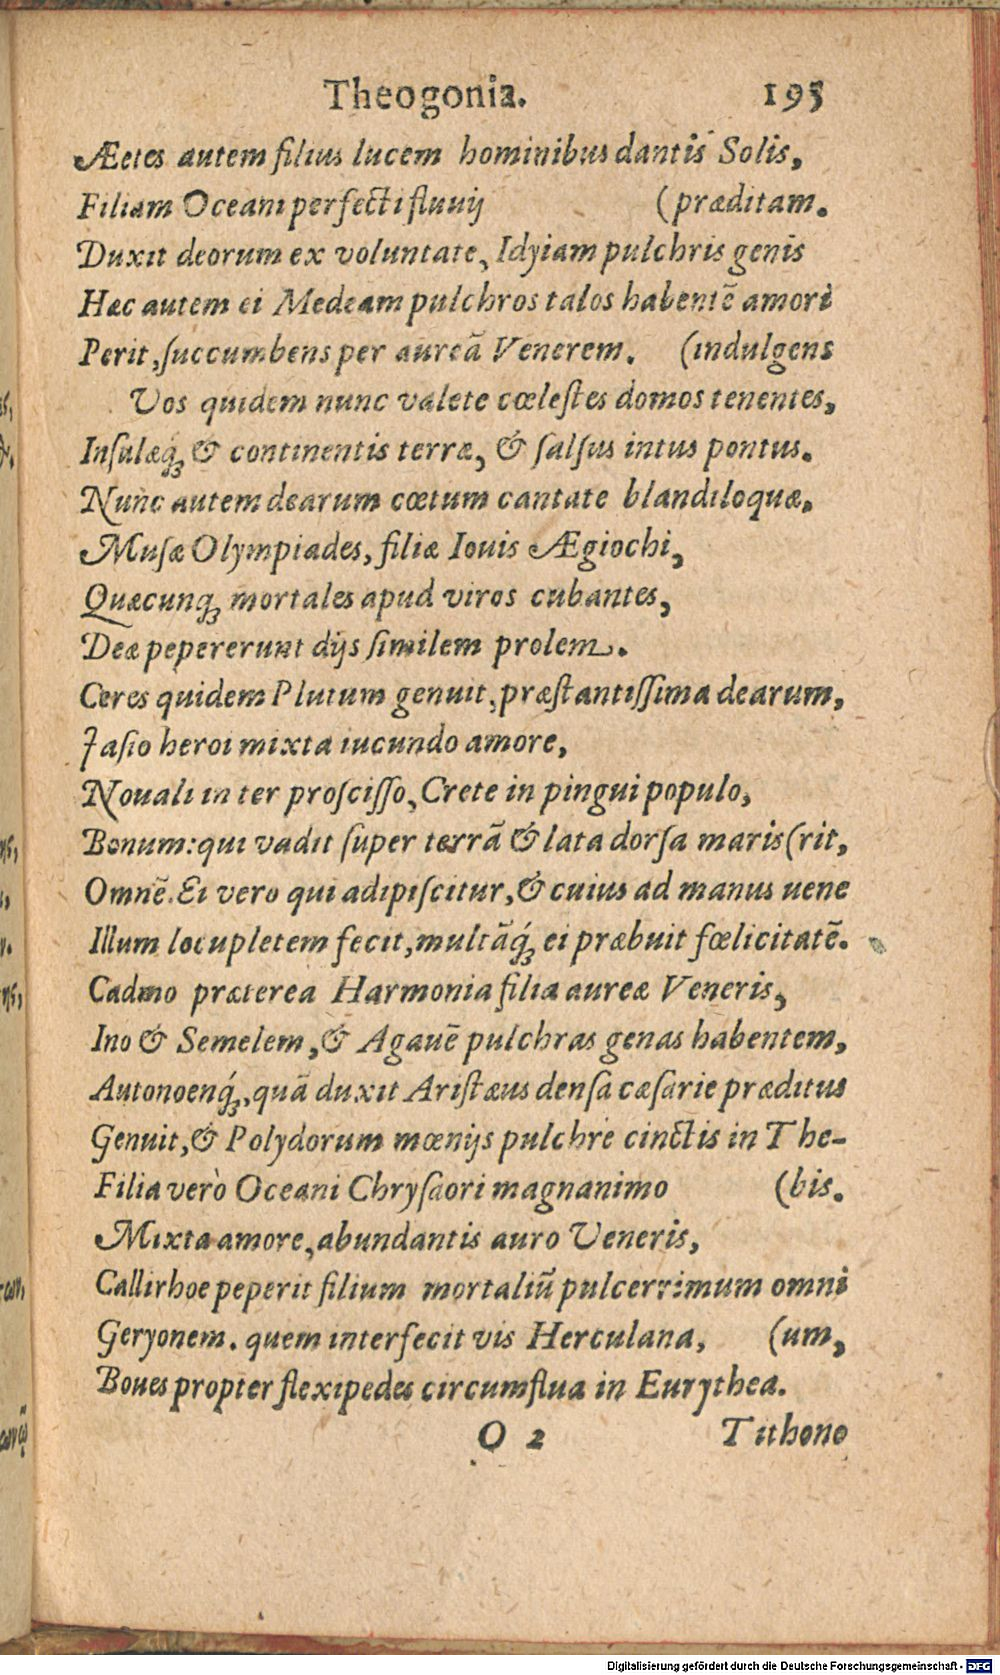 Theogonia. 195
Æetes autem filius lucem hominibus dantis Solis,
Filiam Oceani perfecti fluuij (præditam.
Duxit deorum ex voluntate, Idyiam pulchris genis
Hæc autem ei Medeam pulchros talos habentē amori
Perit, succumbens per aureā Venerem. (indulgens
Vos quidem nunc valete cœlestes domos tenentes,
Insulæq́; & continentis terræ, & salsus intus pontus.
Nunc autem dearum cœtum cantate blandiloquæ,
Musæ Olympiades, filiæ Iouis Ægiochi,
Quæcunq; mortales apud viros cubantes,
Deæ pepererunt dijs similem prolem.
Ceres quidem Plutum genuit, præstantissima dearum,
Jasio heroi mixta iucundo amore,
Nouali in ter proscisso, Crete in pingui populo,
Bonum: qui vadit super terrā & lata dorsa maris (rit,
Omnē. Ei vero qui adipiscitur, & cuius ad manus uene
Illum locupletem fecit, multāq́; ei præbuit fœlicitatē.
Cadmo præterea Harmonia filia aureæ Veneris,
Ino & Semelem, & Agauē pulchras genas habentem,
Autonoenq́;, quā duxit Aristæus densa cæsarie præditus
Genuit, & Polydorum mœnijs pulchre cinctis in The-
Filia verò Oceani Chrysaori magnanimo (bis.
Mixta amore, abundantis auro Veneris,
Callirhoe peperit filium mortaliū pulcerrimum omni
Geryonem. quem interfecit vis Herculana, (um,
Boues propter flexipedes circumflua in Eurythea.
O 2 Tithono
Digitalisierung gefördert durch die Deutsche Forschungsgemeinschaft - DFG